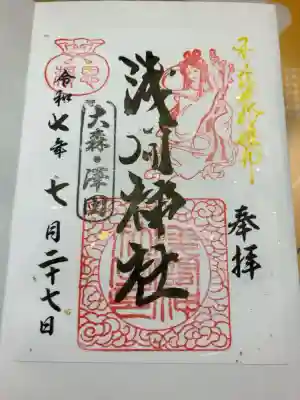 奉拝
浅間神社
大森・澤田
令和七年 七月二十七日